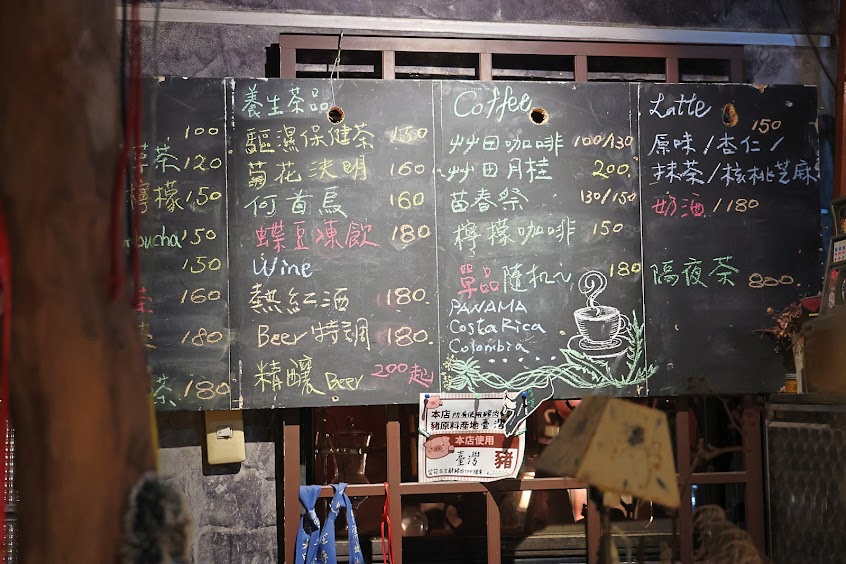 100
茶 120
檸檬 150
bucha 150
150
160
180
茶 180
養生茶品
驅濕保健茶 150
菊花決明 160
何首烏 160
蝶豆凍飲 180
Wine
熱紅酒 180.
Beer 特調 180.
精釀 Beer 200起
Coffee
艸田咖啡 100/130
艸田月桂 200.
苗春祭 130/150
檸檬咖啡 150
單品隨机 180
PANAMA
Costa Rica
Colombia
Latte
150
原味/杏仁/
抹茶/核桃芝麻
奶酒/180
隔夜茶 800
本店
豬原料產地臺灣
本店使用
臺灣 豬